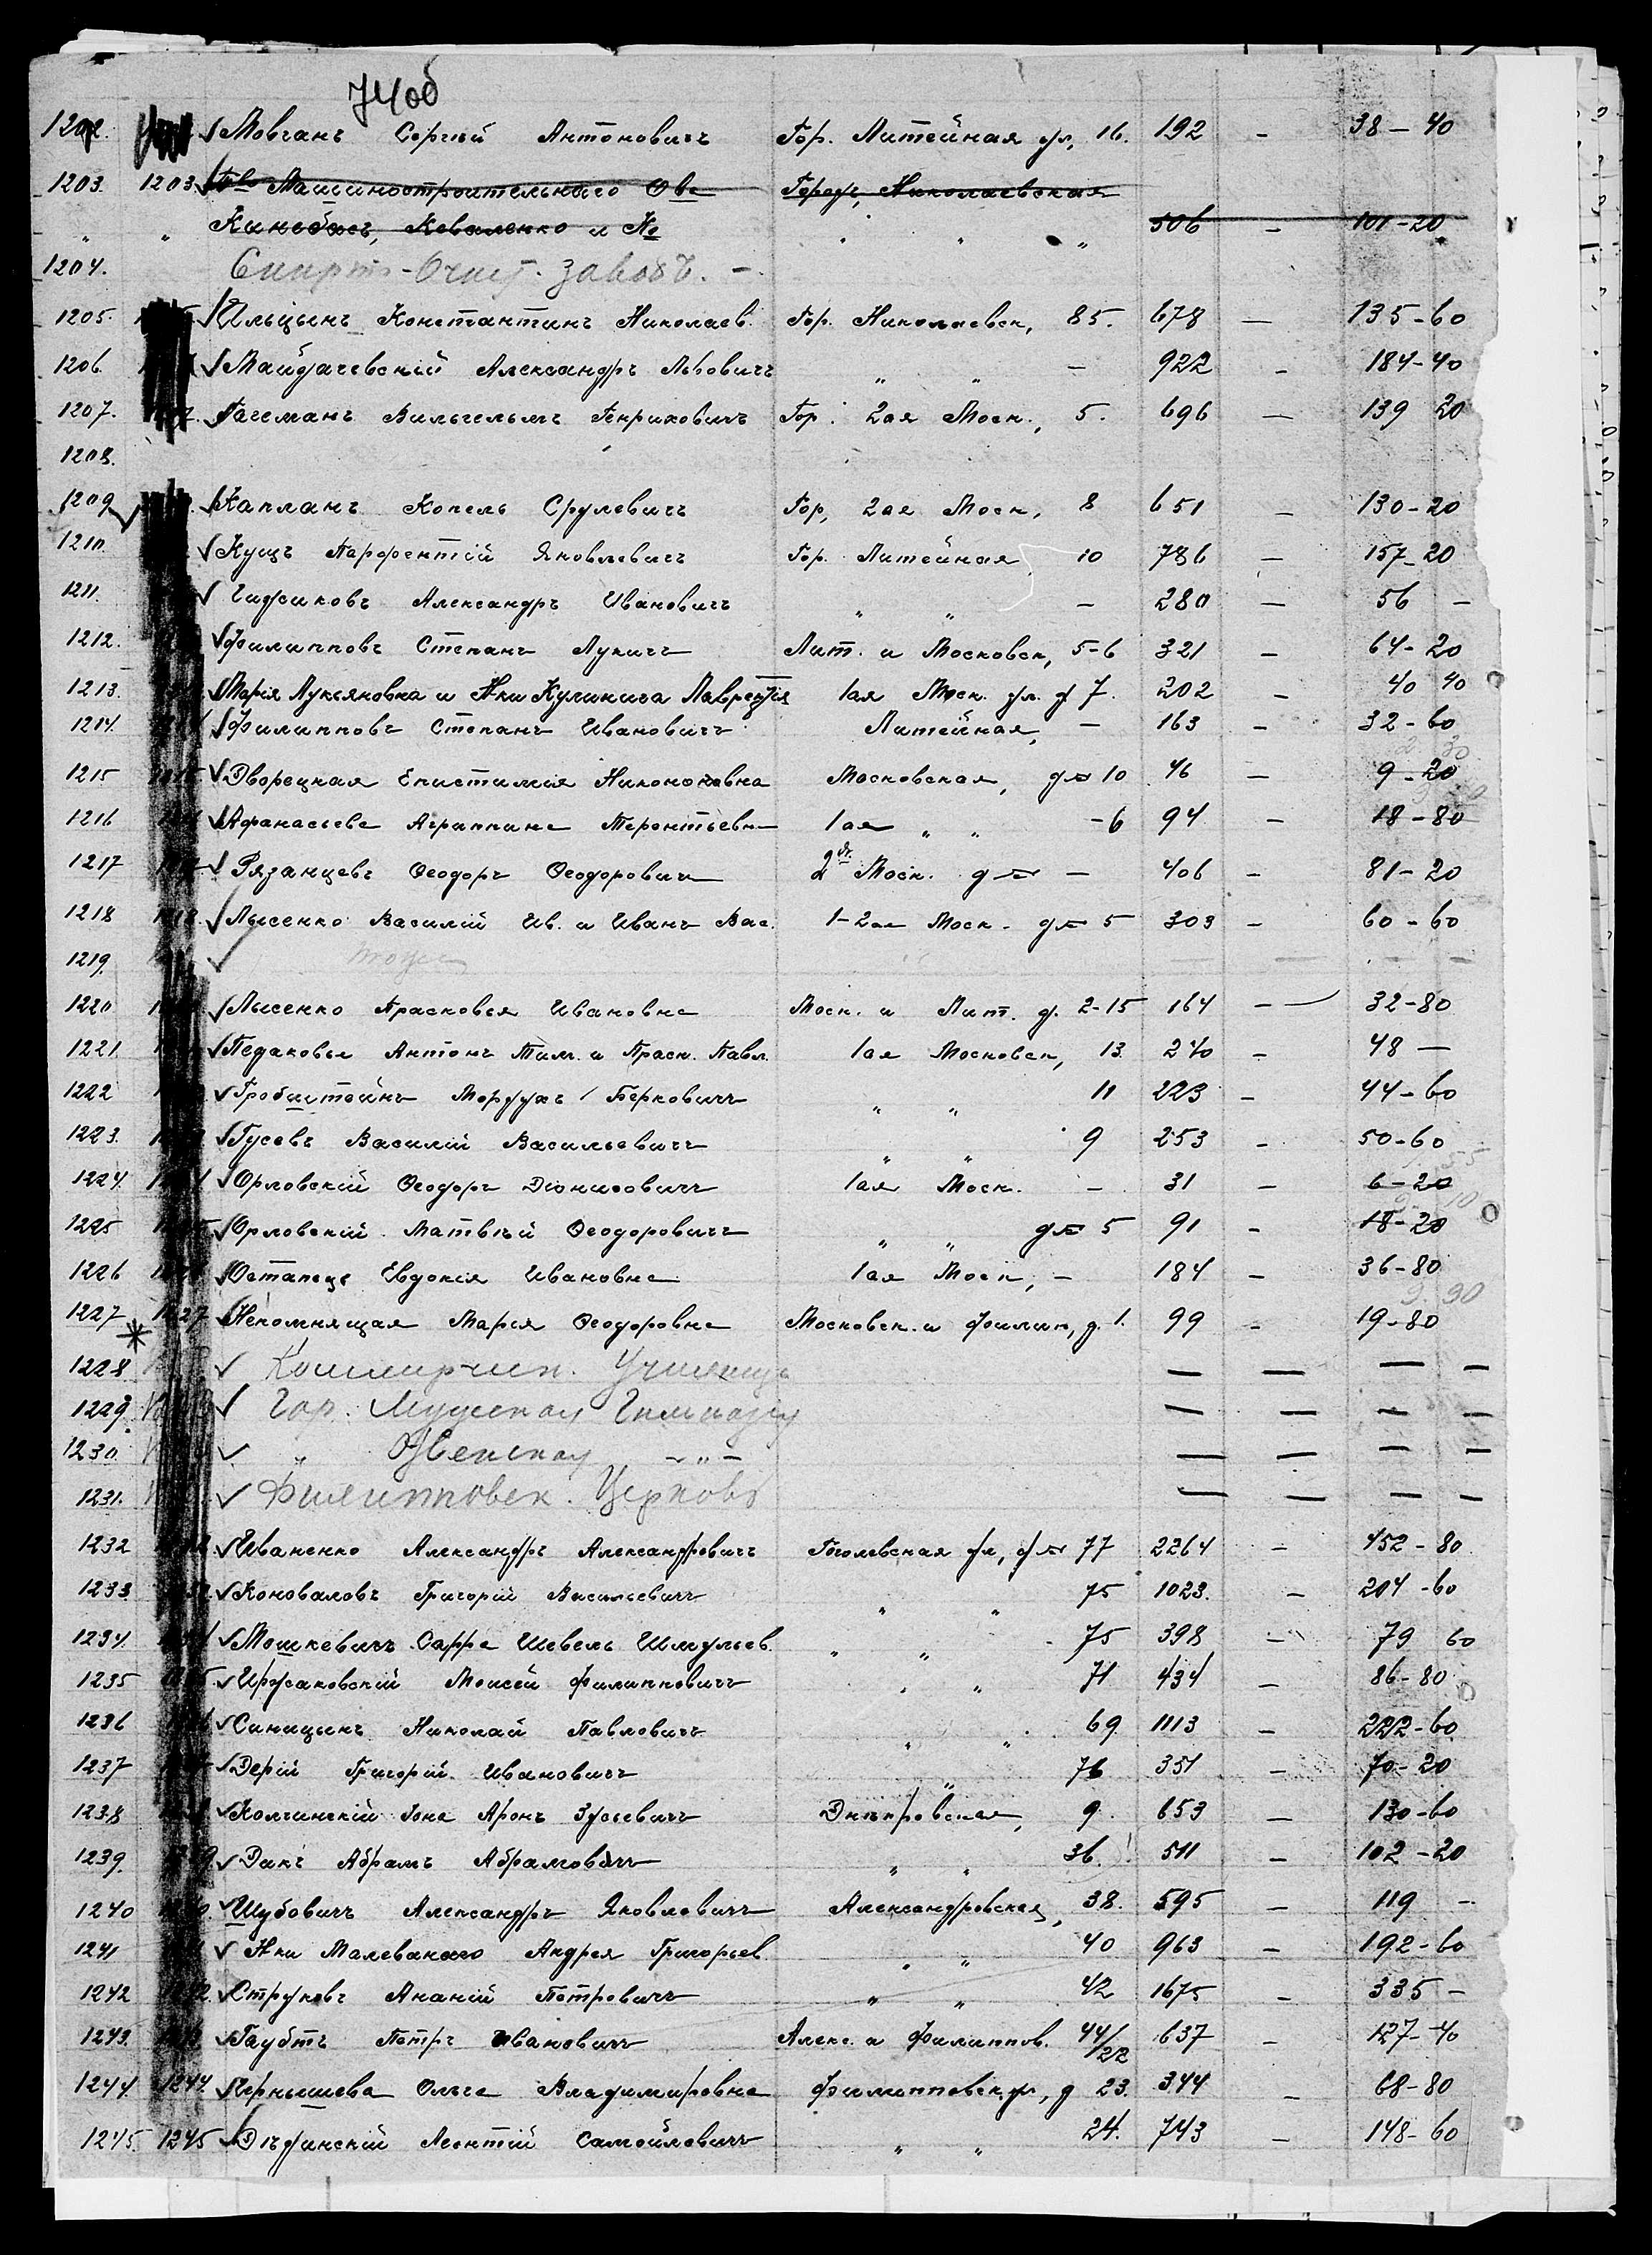 74об
1202. Мовчанъ Сергѣй Антоновичъ Гор. Литейная ул, 16. 192 - 38-40
1203. 1203 Т-во Машиностроительнаго О-ва Городъ, Николаевская
" " Коваленко и Ко " " " 506 - 101-20
1204. Спирто-Очист. заводъ. -
1205. Ильцынъ Константинъ Николаев. Гор. Николаевск, 85. 678 - 135-60
1206. Майдачевскій Александръ Львовичъ " " - 922 - 184-40
1207. Гагеманъ Вильгельмъ Генриховичъ Гор. 2ая Моск., 5. 696 - 139 20
1208.
1209 Капланъ Копель Срулевичъ Гор, 2ая Моск, 8 651 - 130-20
1210. Кущъ Парфентій Яковлевичъ Гор. Литейная 10 786 - 157-20
1211. Александръ Ивановичъ " " - 280 - 56 -
1212. Филипповъ Степанъ Лукичъ Лит. и Московск, 5-6 321 - 64-20
1213. Марія Лукьяновна и Н-ки Кулинича Лаврентія 1ая Моск. ул. д 7. 202 - 40 40
1214. Филипповъ Степанъ Ивановичъ Литейная, - 163 - 32-60
1215 1215 Дворецкая Епистимія Никоновна Московская, д № 10 46 - 9-20
1216 Афанасьева Агриппина Терентьевна 1ая " " -6 94 - 18-80
1217 Рязанцевъ Ѳеодоръ Ѳеодоровичъ 2я Моск. д № - 406 - 81-20
1218 1218. Лысенко Василій Ив. и Иванъ Вас. 1-2ая Моск. д № 5 303 - 60-60
1219. тоже - - - -
1220 Лысенко Прасковья Ивановна Моск. и Лит. д. 2-15 164 - 32-80
1221. Педаковы Антонъ Тим. и Праск. Павл. 1ая Московск, 13. 240 - 48 -
1222 Гробштейнъ Мордухъ Берковичъ " " 11 223 - 44-60
1223. Гусевъ Василій Васильевичъ " " 9 253 - 50-60
1224. Орловскій Ѳеодоръ Діонисовичъ 1ая Моск. - 31 - 6-20
1225 Орловскій Матвѣй Ѳеодоровичъ " " д № 5 91 - 18-20
1226 Остапецъ Евдокія Ивановна 1ая Моск, - 184 - 36-80
1227 1227 Непомнящая Марія Ѳеодоровна Московск. и Филип, д. 1. 99 - 19-80
1228 Коммерческ. Училище - - - -
1229. Гор. Мужская Гимназія - - - -
1230. " Женская - " - - - - -
1231. Филипповск. Церковь - - - -
1232 Иваненко Александръ Александровичъ Гоголевская ул, д № 77 2264 - 452-80
1233. Коноваловъ Григорій Васильевичъ " " 75 1023. - 204-60
1234. Мошкевичъ Сарра Шевель Шмульев. " " 75 398 - 79 60
1235 Моисей Филипповичъ " " 71 434 - 86-80
1236 Синицынъ Николай Павловичъ " " 69 1113 - 222-60
1237 Дерій Григорій Ивановичъ " 76 351 - 70-20
1238 Колчинскій Зона Аронъ Зусевичъ Днѣпровская, 9 653 - 130-60
1239. Дикъ Абрамъ Абрамовичъ " " 36. 511 - 102-20
1240 Шубовичъ Александръ Яковлевичъ Александровская, 38. 595 - 119 -
1241 Н-ки Малеванаго Андрея Григорьев. " " 40 963 - 192-60
1242 Струковъ Ананій Петровичъ " " 42 1675 - 335 -
1243. Гаубтъ Петръ Ивановичъ Алекс. и Филиппов. 44/22 637 - 127-40
1244. 1244. Чернышева Ольга Владимировна Филипповск. ул, д 23. 344 - 68-80
1245. 1245 Леонтій Самойловичъ " " 24. 743 - 148-60